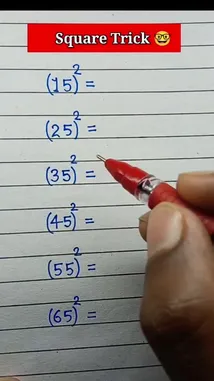 Square Trick 🤓
(15)² =
(25)² =
(35)² =
(45)² =
(55)² =
(65)² =